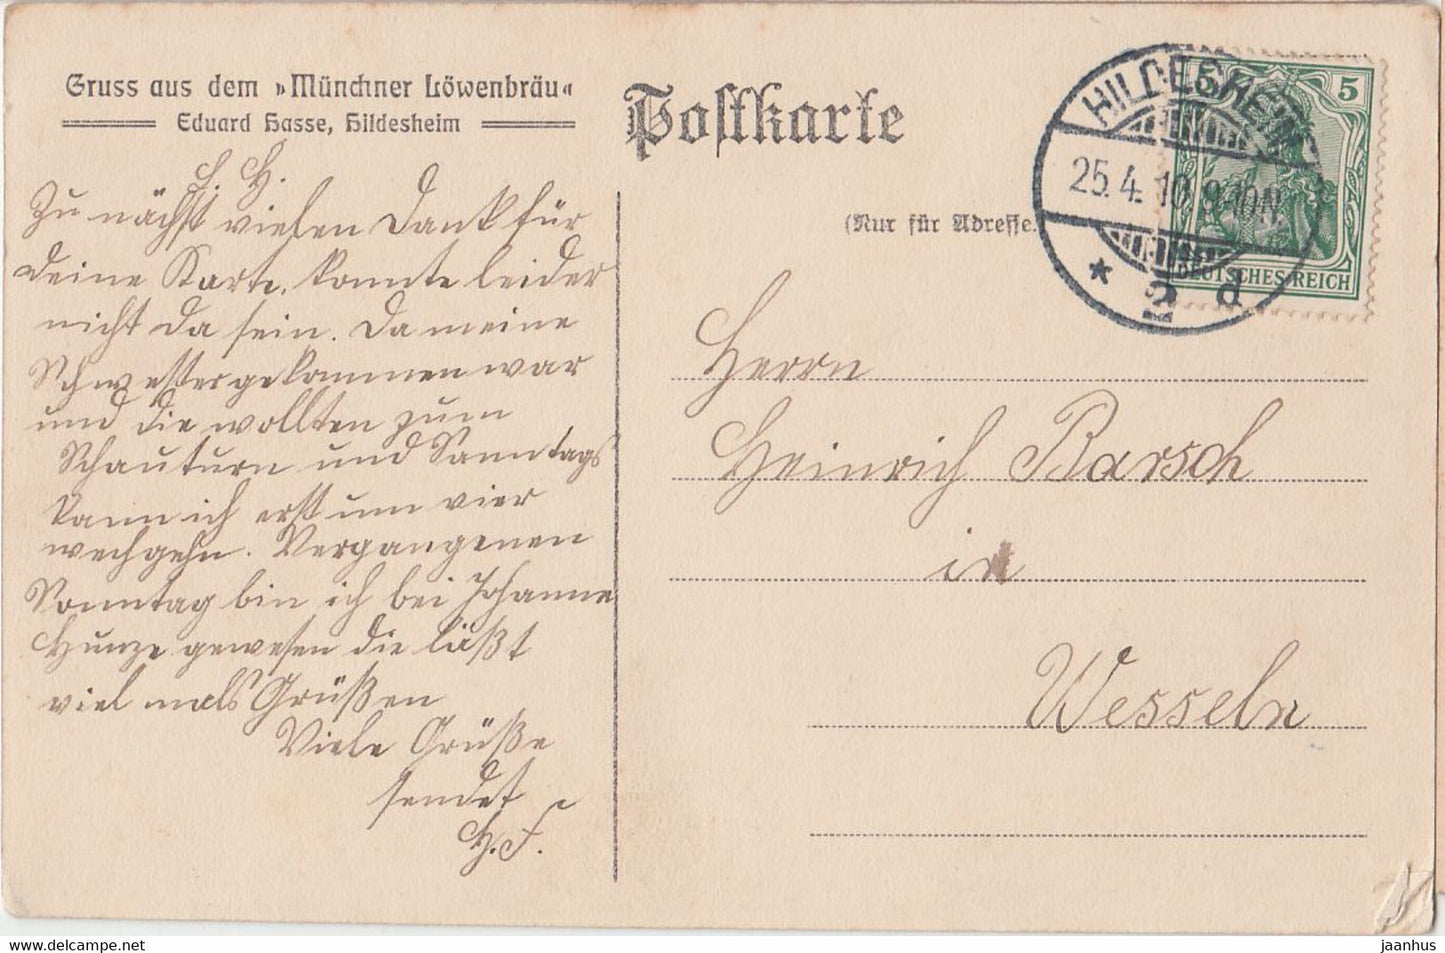 Gruss aus dem »Münchner Löwenbräu«
Eduard Hasse, Hildesheim
Postkarte
(Nur für Adresse.
HILDESHEIM
25.4.10.9-10N.
* 2 d
5
DEUTSCHES REICH
L. H.
Zu nächst vielen Dank für
deine Karte, konnte leider
nicht da sein. Da meine
Schwester gekommen war
und die wollten zum
Schauturn und Sonntags
kann ich erst um vier
wechgehn. Vergangenen
Sonntag bin ich bei Johanne
Hunze gewesen die läßt
viel mals Grüßen
Viele Grüße
sendet
H. F.
Herrn
Heinrich Barsch
in
Wesseln
delcampe.net
jaanhus